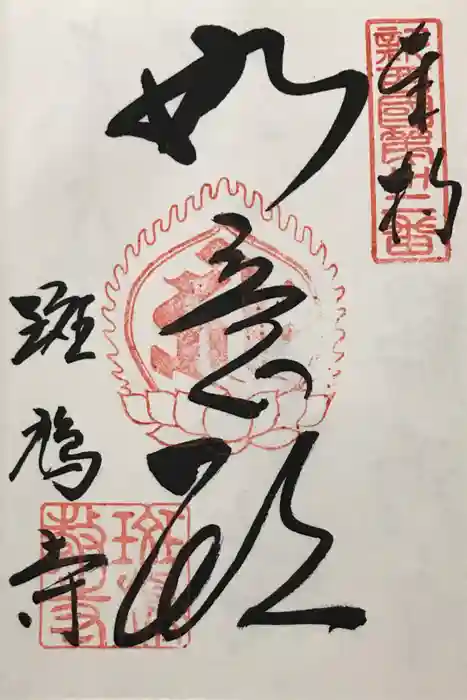 奉拝
新西国第卅二番
如意殿
斑鳩寺
斑鳩教寺